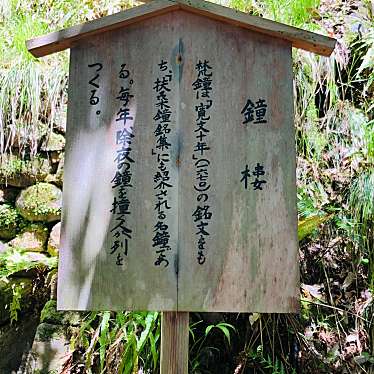 鐘楼
梵鐘は「寛文十年」(一六七〇)の銘文をも
ち、「扶桑鐘銘集」にも紹介される名鐘であ
る。毎年除夜の鐘を撞く人が列を
つくる。